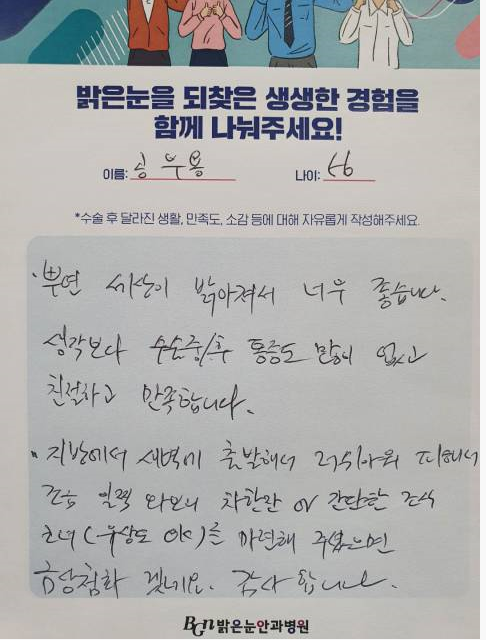 밝은눈을 되찾은 생생한 경험을
함께 나눠주세요!
이름: 송부용 나이: 56
*수술 후 달라진 생활, 만족도, 소감 등에 대해 자유롭게 작성해주세요.
· 뿌연 세상이 밝아져서 너무 좋습니다.
생각보다 수술중/후 통증도 많이 없고
친절하고 만족합니다.
· 지방에서 새벽에 출발해서 러시아워 피해서
조금 일찍 와보니 차한잔 or 간단한 조식
코너(유상도 OK)를 마련해 주셨으면
금상첨화 겠네요. 감사 합니다.
BGN밝은눈안과병원